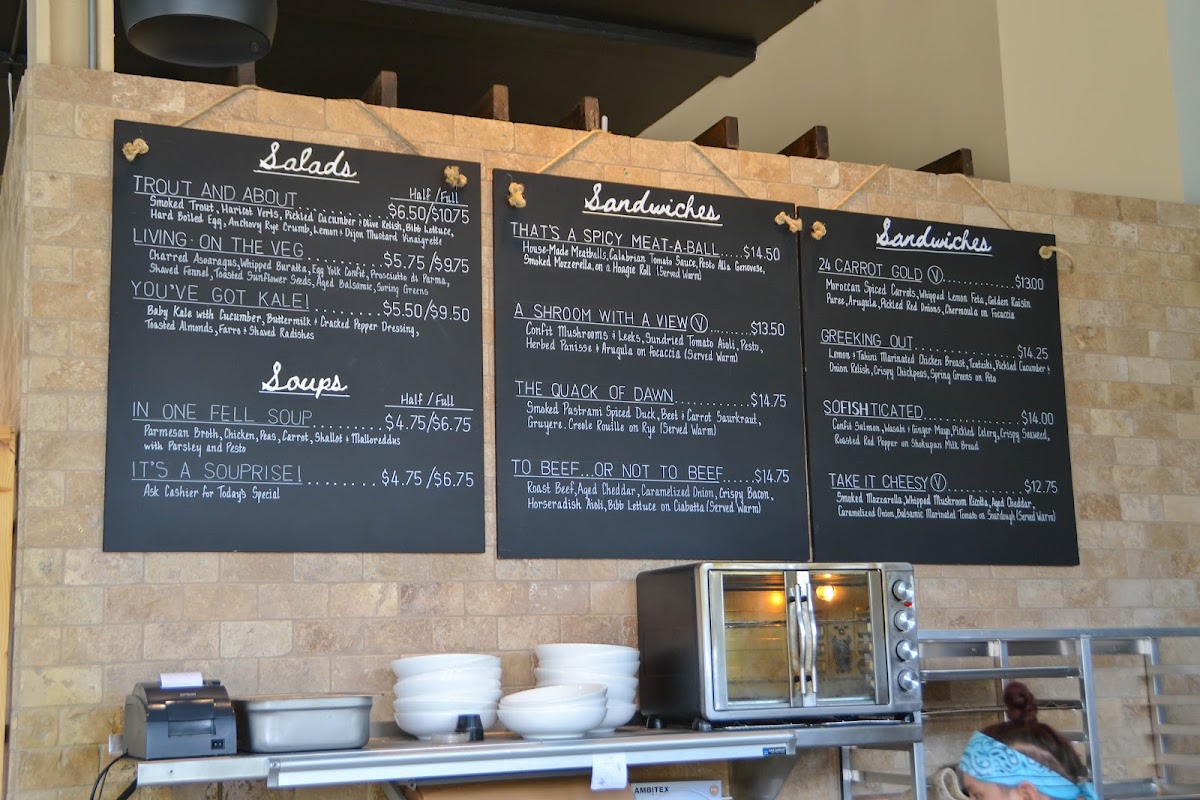 Salads
Half/Full
TROUT AND ABOUT..............$6.50/$10.75
Smoked Trout, Haricot Verts, Pickled Cucumber + Olive Relish, Bibb Lettuce,
Hard Boiled Egg, Anchovy Rye Crumb, Lemon + Dijon Mustard Vinaigrette
LIVING ON THE VEG..........$5.75/$9.75
Charred Asparagus, Whipped Buratta, Egg Yolk Confit, Prosciutto di Parma,
Shaved Fennel, Toasted Sunflower Seeds, Aged Balsamic, Spring Greens
YOU'VE GOT KALE!.........$5.50/$9.50
Baby Kale with Cucumber, Buttermilk + Cracked Pepper Dressing,
Toasted Almonds, Farro + Shaved Radishes
Soups
Half/Full
IN ONE FELL SOUP........$4.75/$6.75
Parmesan Broth, Chicken, Peas, Carrot, Shallot + Malloreddus
with Parsley and Pesto
IT'S A SOUPRISE!.........$4.75/$6.75
Ask Cashier for Today's Special
Sandwiches
THAT'S A SPICY MEAT-A-BALL.....$14.50
House-Made Meatballs, Calabrian Tomato Sauce, Pesto Alla Genovese,
Smoked Mozzerella, on a Hoagie Roll (Served Warm)
A SHROOM WITH A VIEW Ⓥ.........$13.50
Confit Mushrooms + Leeks, Sundried Tomato Aioli, Pesto,
Herbed Panisse + Arugula on focaccia (Served Warm)
THE QUACK OF DAWN............$14.75
Smoked Pastrami Spiced Duck, Beet + Carrot Saurkraut,
Gruyere. Creole Rouille on Rye (Served Warm)
TO BEEF...OR NOT TO BEEF......$14.75
Roast Beef, Aged Cheddar, Caramelized Onion, Crispy Bacon,
Horseradish Aioli, Bibb Lettuce on Ciabatta (Served Warm)
Sandwiches
24 CARROT GOLD Ⓥ............$13.00
Moroccan Spiced Carrots, Whipped Lemon Feta, Golden Raisin
Puree, Arugula, Pickled Red Onions, Chermoula on Focaccia
GREEKING OUT................$14.25
Lemon + Tahini Marinated Chicken Breast, Tzatziki, Pickled Cucumber +
Onion Relish, Crispy Chickpeas, Spring Greens on Pita
SOFISHTICATED...............$14.00
Confit Salmon, Wasabi + Ginger Mayo, Pickled Celery, Crispy Seaweed,
Roasted Red Pepper on Shokupan Milk Bread
TAKE IT CHEESY Ⓥ............$12.75
Smoked Mozzarella, Whipped Mushroom Ricotta, Aged Cheddar,
Caramelized Onion, Balsamic Marinated Tomato on Sourdough (Served Warm)
AMBITEX